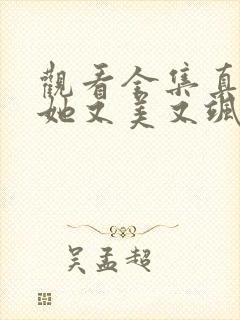 觀看全集真
她又美又颯
吴孟超